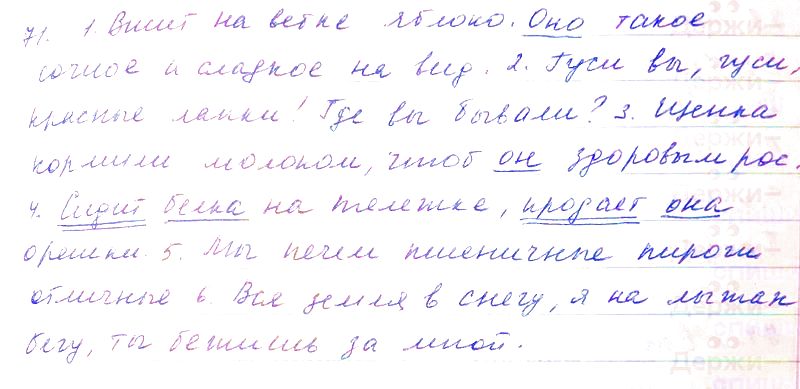 71. 1. Висит на ветке яблоко. Оно такое
сочное и сладкое на вид. 2. Гуси вы, гуси,
красные лапки! Где вы бывали? 3. Щенка
кормили молоком, чтоб он здоровым рос.
4. Сидит белка на тележке, продает она
орешки. 5. Мы печем пшеничные пироги
отличные 6. Вся земля в снегу, я на лыжах
бегу, ты бежишь за мной.